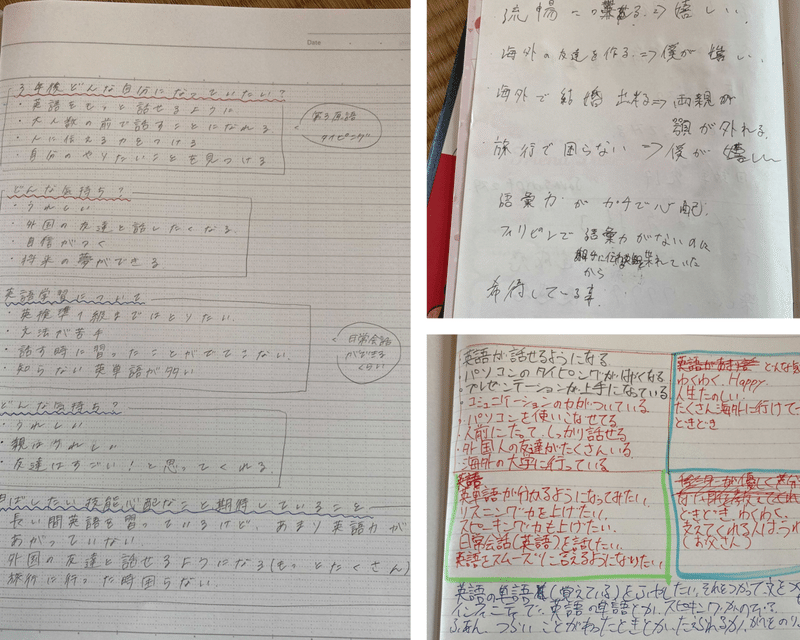 Date
3年後どんな自分になっていたい?
・英語をもっと話せるように
・大人数の前で話すことになれる
・人に伝える力をつける
・自分のやりたいことを見つける
第3言語
タイピング
どんな気持ち?
・うれしい
・外国の友達と話したくなる
・自信がつく
・将来の夢ができる
英語学習について
・英検準1級まではとりたい
・文法が苦手
・話す時に習ったことがでてこない。
・知らない英単語が多い
日常会話
ができる
くらい
どんな気持ち?
・うれしい
・親はうれしい
・友達はすごい!と思ってくれる。
ばしたい技能心配なこと期待していること
長い間英語を習っているけど、あまり英語力が
あがっていない
外国の友達と話せるようになる(もっとたくさん)
旅行に行った時困らない。
⇒嬉しい
海外の友達を作る⇒僕が嬉しい、
海外で結婚出来る⇒両親が
顎が外れる
旅行で困らない⇒僕が嬉しい
語彙力がカチで心配
フィリピンで語彙力がないのに
から
期待している事
英語が話せるようになる
・パソコンのタイピングがはやくなる
・プレゼンテーションが上手になっている
・コミュニケーションの力がついている
・パソコンを使いこなせてる
・人前にたって、しっかり話せる
・外国人の友達がたくさんいる。
・海外の大学に行っている
わくわく、Happy
人生たのしい
たくさん海外に行けて
どきどき
英語
英単語が分かるようになってみたい。
リスニング力も上げたい。
スピーキング力も上げたい。
日常会話(英語)を話したい。
英語をスムーズに言えるようになりたい。
どきどき、わくわく、
支えてくれる人はうれ
(お父さん)
英語の単語(覚えている)をふやしたい。それをつかって文をつ